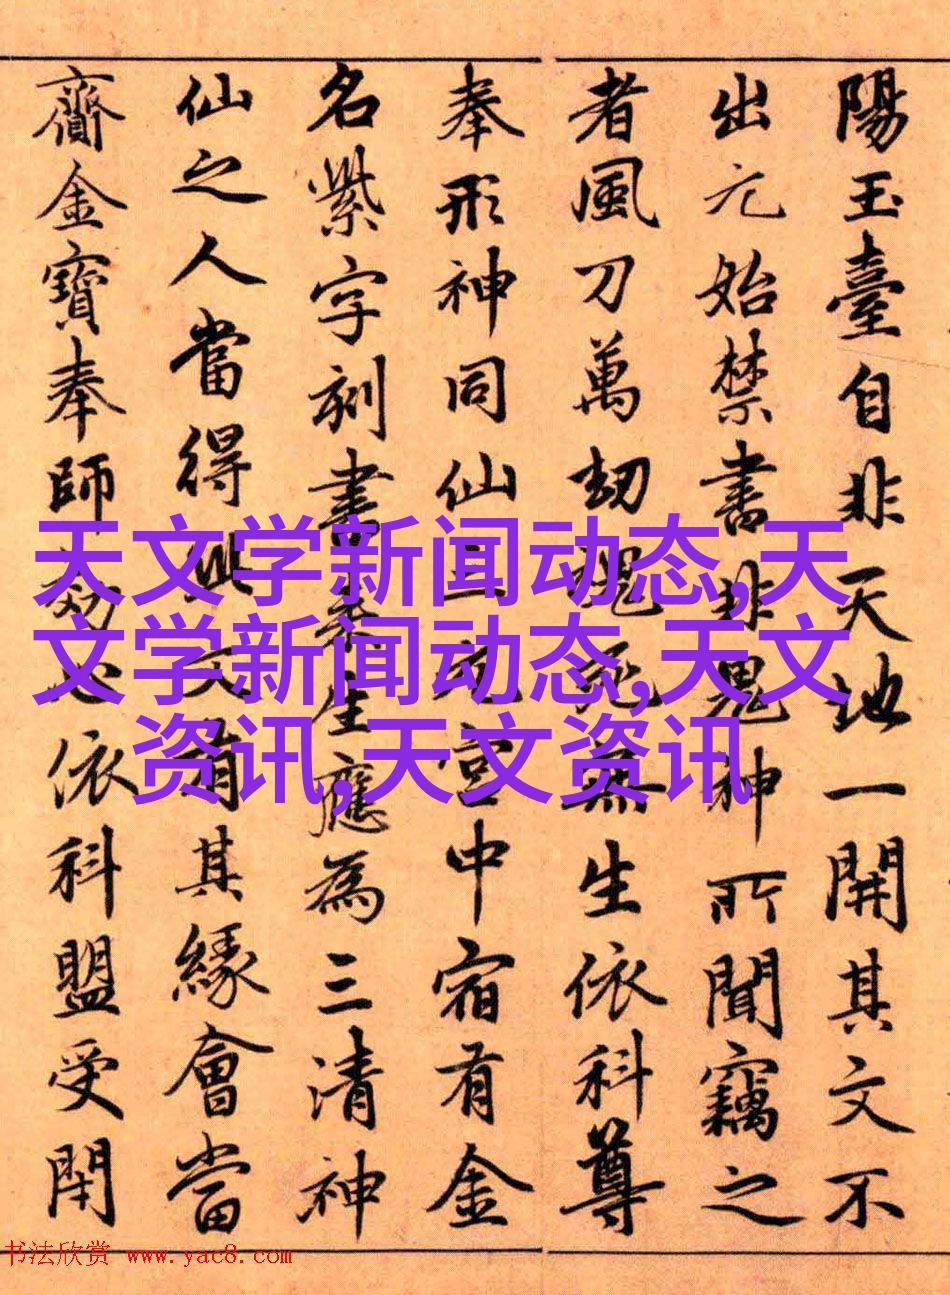 陽玉臺自非天地一開其文不
出元始禁書非鬼神所聞竊之
者風刀萬劫死無生依科尊
奉形神同仙三元宮中宿有金
名紫字刻書生應為三清神
仙之人當得此文有其緣會當
齎金寶奉師効心依科盟受閇
天文学新闻动态,天
文学新闻动态,天文
资讯,天文资讯
书法欣赏 www.yac8.com